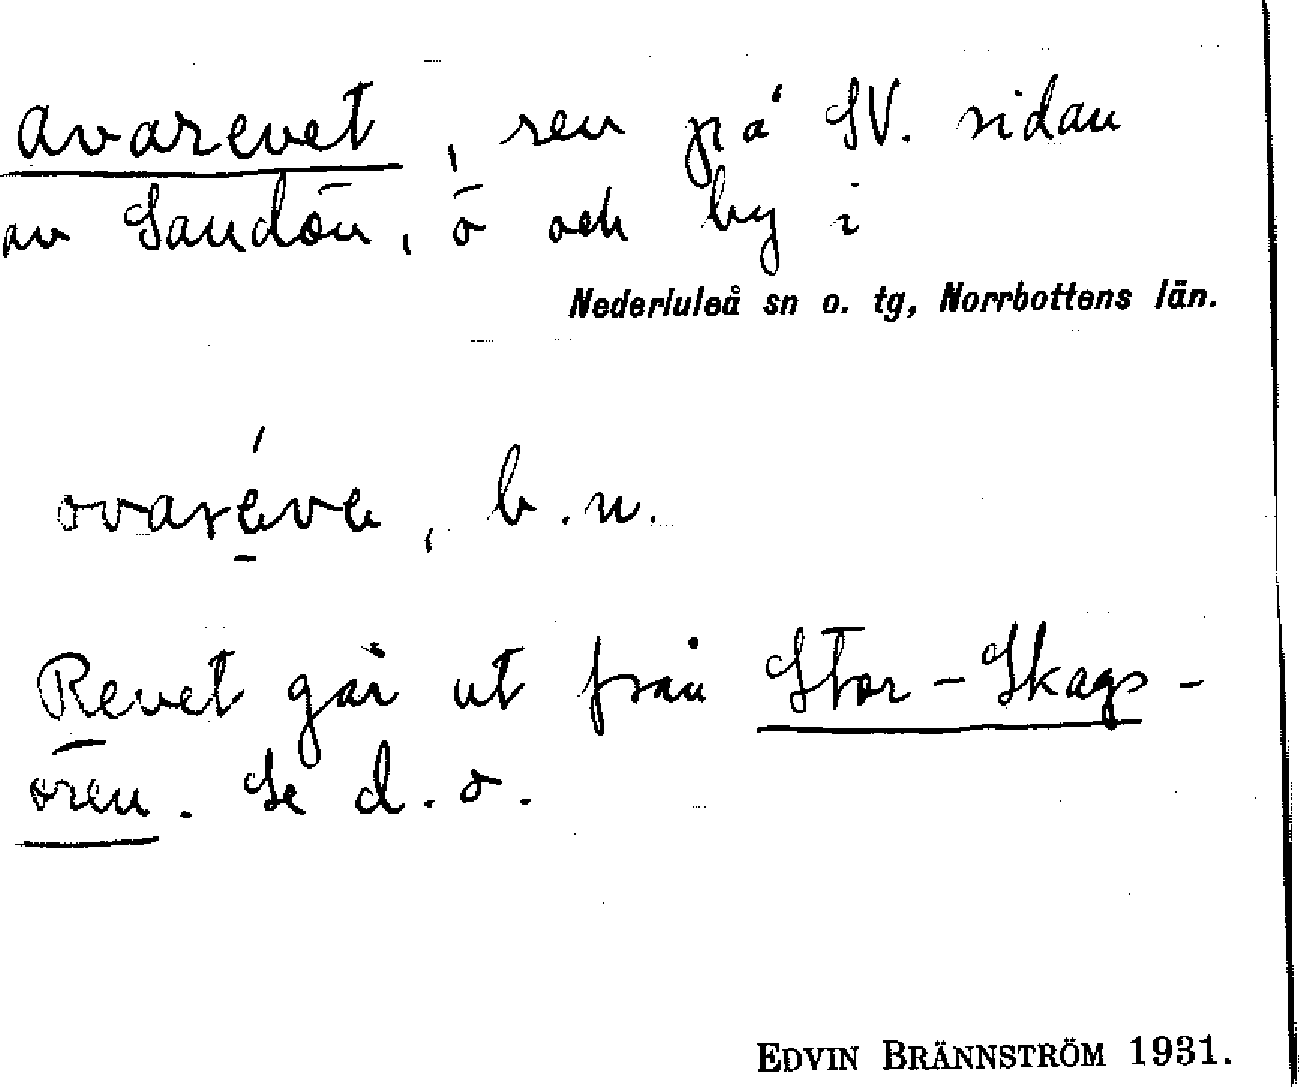 Avarevet, rev på SV. sidan
av Sandön, ö och by i
Nederluleå sn o. tg, Norrbottens län.
ovaréve, b.n.
Revet går ut från Stor-Skags-
ören. Se d. o.
EDVIN BRÄNNSTRÖM 1931.